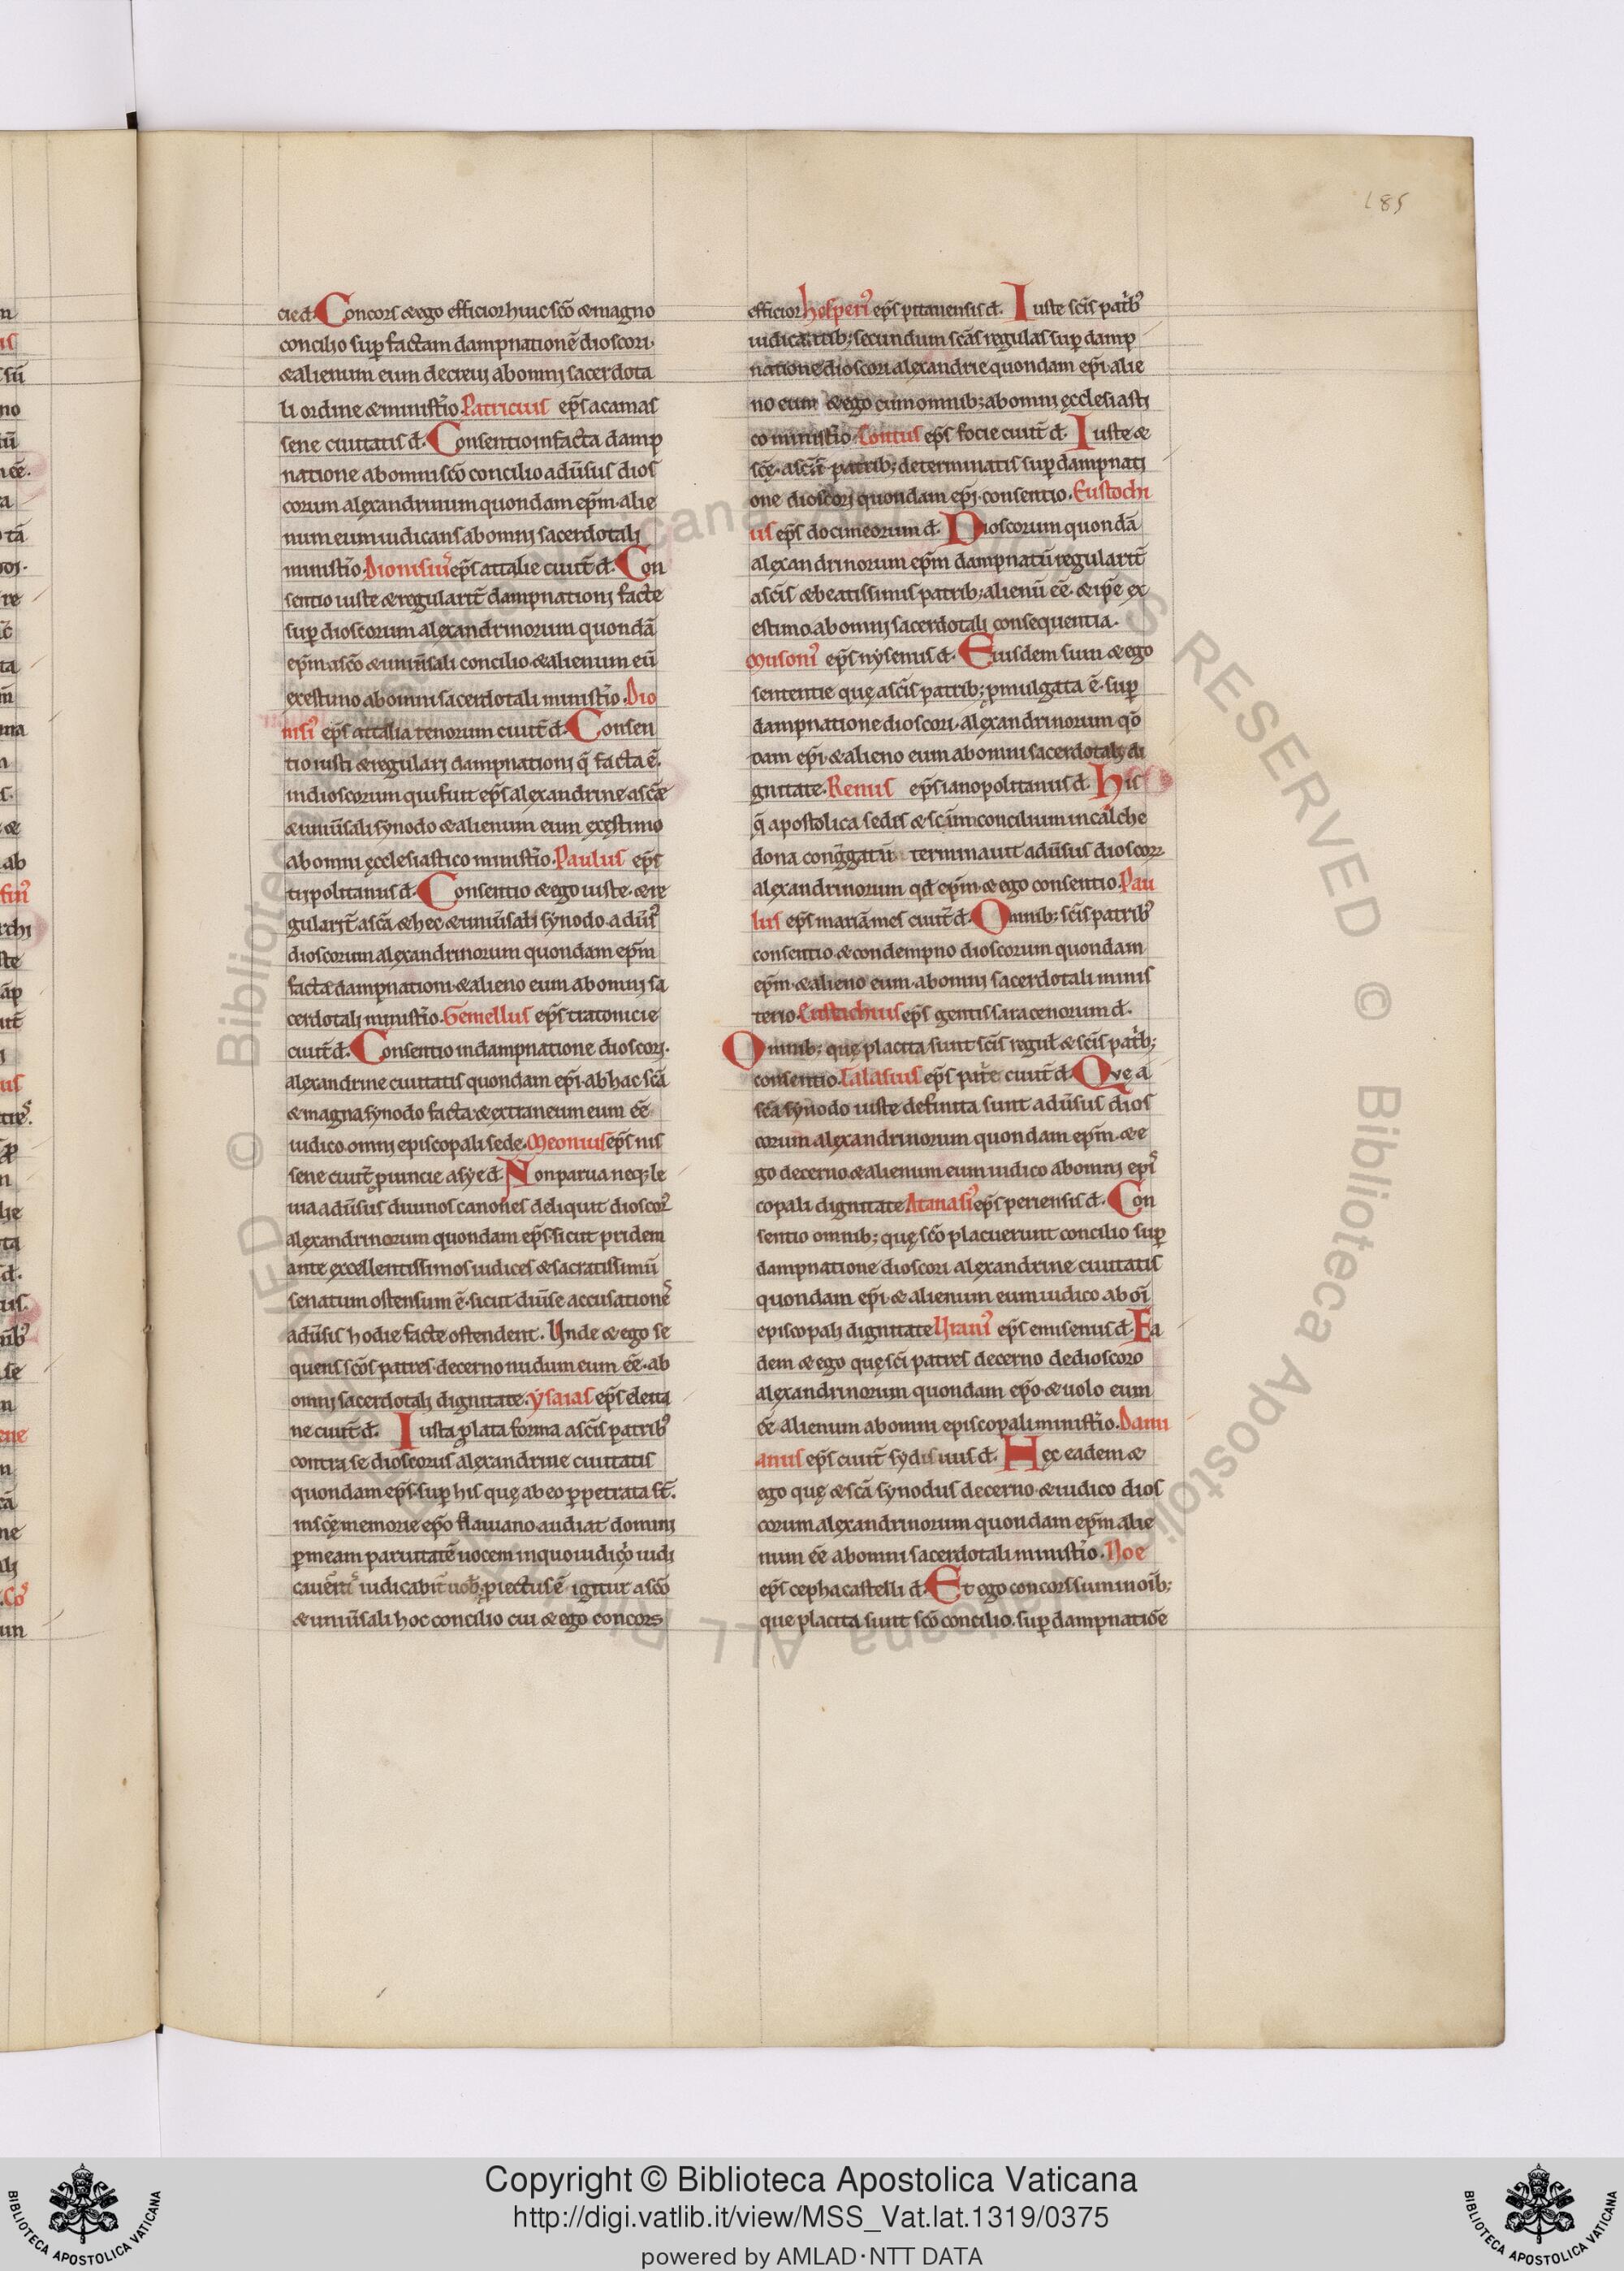 185
cie d̄. Concors & ego efficior huic sc̄o & magno
concilio sup̱ factam dampnationē dioscori.
& alienum eum decreui ab omni sacerdota
li ordine & minist̄io. Patricius ep̄s acamas
sene ciuitatis d̄. Consentio in facta damp
natione ab omni sc̄o concilio adūsus dios
corum alexandrinum quondam ep̄m. alie
num eum iudicans ab omni sacerdotali
minist̄io. Dionisiuˀ ep̄s attalie ciuit̄ d̄. Con
sentio iuste & regularit̄ dampnationi facte
sup̱ dioscorum alexandrinorum quondā
ep̄m. a sc̄o & uniūsali concilio. & alienum eū
exestimo ab omni sacerdotali minist̄io. Dio
nisiˀ ep̄s attalia tenorum ciuit̄ d̄. Consen
tio iusti & regulari dampnationi q̄ facta ē.
in dioscorum qui fuit ep̄s alexandrine a sc̄a
& uniūsali synodo & alienum eum exestimo
ab omni ęcclesiastico minist̄io. Paulus ep̄s
tripolitanus d̄. Consentio & ego iuste. & re
gularit̄ a sc̄a & hec & uniūsali synodo. adūsˀ
dioscorum alexandrinorum quondam ep̄m
facta dampnationi. & alieno eum ab omni sa
cerdotali minist̄io. Gemellus ep̄s tratonicie
ciuit̄ d̄. Consentio in dampnatione dioscori.
alexandrine ciuitatis quondam ep̄i. ab hac sc̄a
& magna synodo facta. & extraneum eum ēē
iudico. omni episcopali sede. Meonius ep̄s nis
sene ciuit̄ ꝓuincie asye d̄. Non parua neq; le
uia adūsus diuinos canones deliquit dioscorˀ
alexandrinorum quondam ep̄s. sicut pridem
ante excellentissimos iudices & sacratissimū
senatum ostensum ē. sicut diuūse accusationeˢ
adūsis hodie facte ostendent. Unde & ego se
quens sc̄os patres. decerno nudum eum ēē. ab
omni sacerdotali dignitate. ysaias ep̄s elena
ne ciuit̄ d̄. Iusta ꝓlata forma a sc̄is patribˀ
contra se dioscorus alexandrine ciuitatis
quondam ep̄s. sup̱ his quę ab eo ꝑpetrata st̄.
in sc̄ę memorie ep̄o flauiano. audiat domini
ꝑ meam paruitatē uocem in quo iudicio iudi
cauer̄tˢ iudicabit̄ uob̄; ꝓiectus ē igitur a sc̄o
& uniūsali hoc concilio cui & ego concors
efficior hesperiˀ ep̄s pitauensis d̄. Iuste sc̄is patribˀ
iudicātib; secundum sc̄as regulas sup̱ damp
natione dioscori alexandrie quondam ep̄i. alie
no eum & ego cum omnib; ab omni ęcclesiasti
co minist̄io. Contus ep̄s focie ciuit̄ d̄. Iuste &
sc̄ę. a sc̄is patrib; determinatis sup̱ dampnati
one dioscori quondam ep̄i. consentio. Eustochi
us ep̄s docimeorum d̄. Dioscorum quondā
alexandrinorum ep̄m dampnatū regularit̄
a sc̄is & beatissimis patrib; alienū ēē. & ip̄e ex
estimo. ab omni sacerdotali consequentia.
Musoniˀ ep̄s nysenus d̄. Eiusdem sum & ego
sententie quę a sc̄is patrib; ꝓmulgata ē. sup̱
dampnatione dioscori. alexandrinorum qō
dam ep̄i. & alieno eum ab omni sacerdotali di
gnitate. Remus ep̄s ianopolitanus d̄. His
q̄ apostolica sedis & sc̄um concilium in calche
dona cong̱gatū terminauit adūsus dioscorꝝ
alexandrinorum qd̄ ep̄m. & ego consentio. Pau
lus ep̄s mariāmes ciuit̄ d̄. Omnib; sc̄is patribˀ
consentio. & condempno dioscorum quondam
ep̄m. & alieno eum. ab omni sacerdotali minis
terio. Eustachius ep̄s gentis saracenorum d̄.
Omnib; que placita sunt sc̄is regul̄ & sc̄is patrib;
consentio. Calasius ep̄s patre ciuit̄ d̄. Quę a
sc̄a synodo iuste definita sunt adūsus dios
corum alexandrinorum quondam ep̄m. & e
go decerno. & alienum eum iudico ab omni epiˢ
copali dignitate. Atanasiˀ ep̄s periensis d̄. Con
sentio omnib; quę sc̄o placuerunt concilio sup̱
dampnatione dioscori alexandrine ciuitatis
quondam ep̄i. & alienum eum iudico ab om̄i
episcopali dignitate. Uraniˀ ep̄s emisenus d̄. Ea
dem & ego quę sc̄i patres decerno de dioscoro
alexandrinorum quondam ep̄o. & uolo eum
ēē alienum ab omni episcopali minist̄io. Dami
anus ep̄s ciuit̄ sydis uus d̄. Hęc eadem &
ego quę & sc̄a synodus decerno. & iudico dios
corum alexandrinorum quondam ep̄m alie
num ēē ab omni sacerdotali minist̄io. Noe
ep̄s cepha castelli d̄. Et ego concors sum in oīb;
que placita sunt sc̄o concilio. sup̱ dampnatiōe
Copyright © Biblioteca Apostolica Vaticana
http://digi.vatlib.it/view/MSS_Vat.lat.1319/0375
powered by AMLAD·NTT DATA